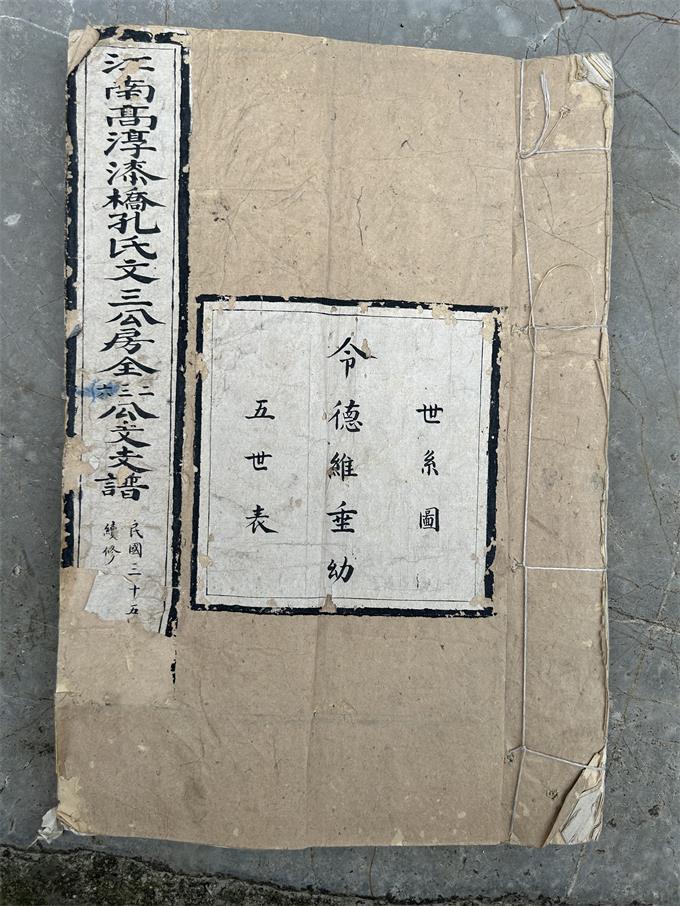 世系圖
令德維垂幼
五世表
江南髙淳漆橋孔氏文三公房全二三六公文支譜
民國三十五
續修